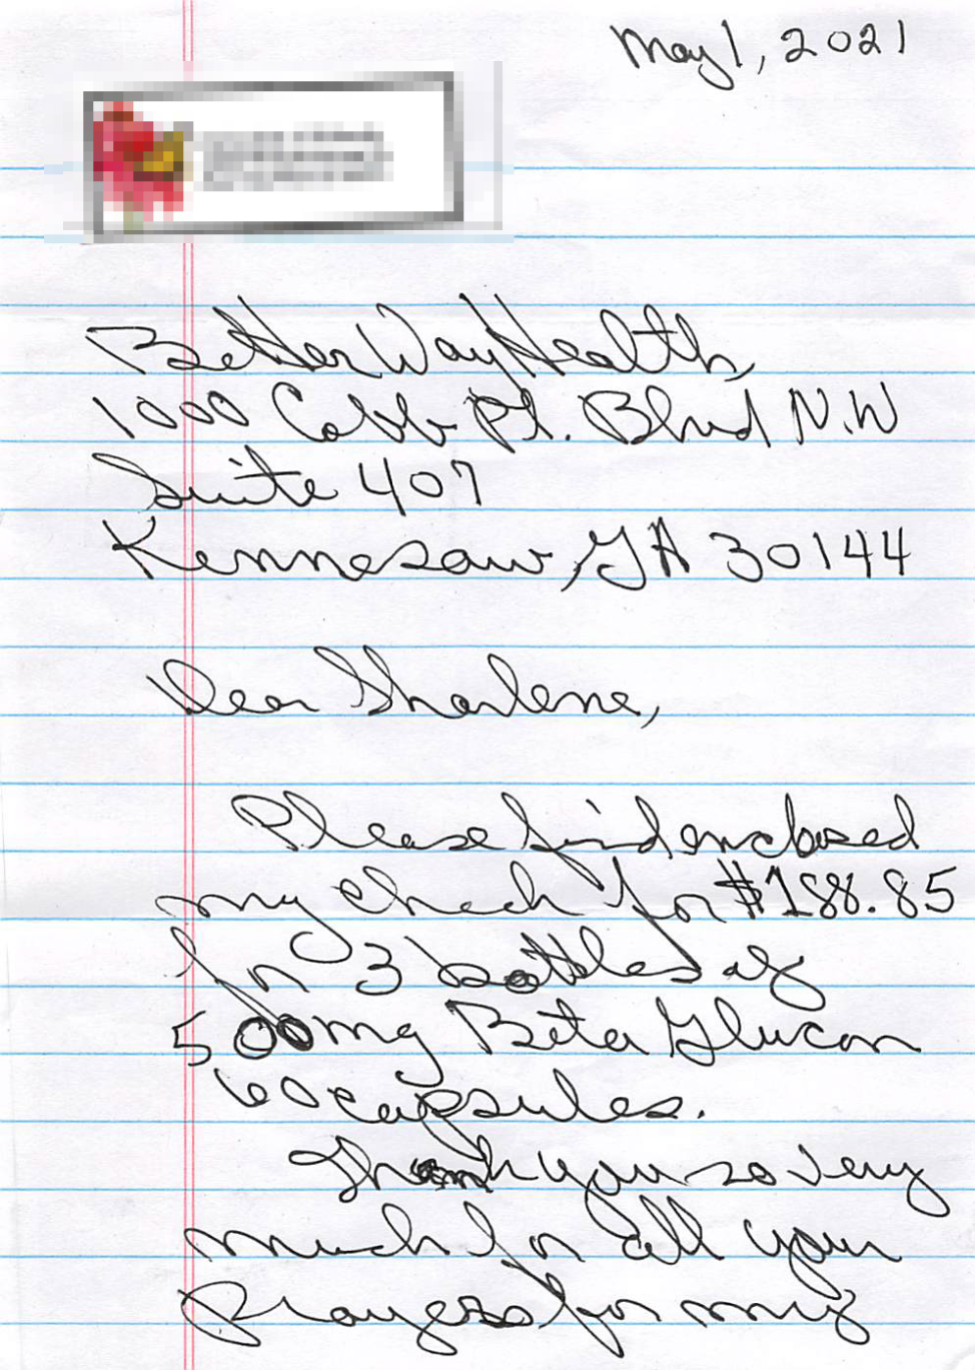 May 1, 2021
Better Way Health,
1000 Cobb Pl. Blvd N.W
Suite 407
Kennesaw, GA 30144
Dear Sharlene,
Please find enclosed
my check for $188.85
for 3 bottles of
500mg Beta Glucan
60 capsules.
Thank you so very
much for all your
Prayers for my